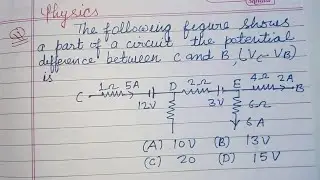 Physics
The following figure shows
a part of a circuit the potential
difference between C and B, (Vc - VB)
is
1Ω 5A D 2Ω E 4Ω 2A
C B
12V 3V 6Ω
6A
(A) 10V (B) 13V
(C) 20 (D) 15V